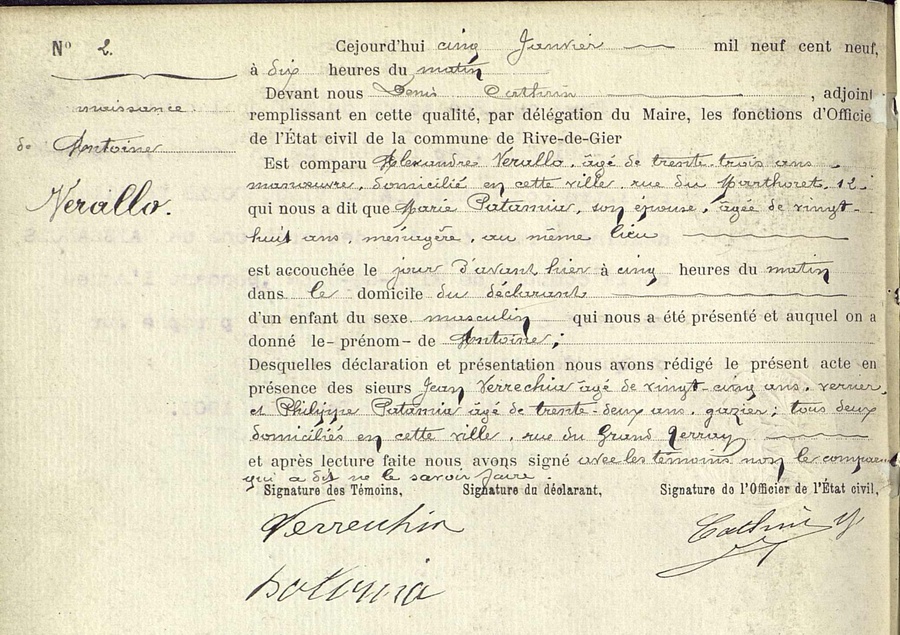 N° 2.
naissance
de Antoine
Verallo.
Cejourd'hui cinq Janvier mil neuf cent neuf,
à dix heures du matin
Devant nous Denis Cathrin, adjoint
remplissant en cette qualité, par délégation du Maire, les fonctions d'Officie
de l'État civil de la commune de Rive-de-Gier
Est comparu Alexandre Verallo, âgé de trente-trois ans
manœuvre, domicilié en cette ville, rue du Marthoret, 12.
qui nous a dit que Marie Patamia, son épouse, âgée de vingt-
huit ans, ménagère, au même lieu
est accouchée le jour d'avant hier à cinq heures du matin
dans le domicile du déclarant
d'un enfant du sexe masculin qui nous a été présenté et auquel on a
donné le-prénom-de Antoine;
Desquelles déclaration et présentation nous avons rédigé le présent acte en
présence des sieurs Jean Verrechia âgé de vingt-cinq ans, verrier,
et Philippe Patamia âgé de trente-deux ans, gazier; tous deux
domiciliés en cette ville, rue du Grand
et après lecture faite nous avons signé avec les témoins non le comparant
qui a dit ne le savoir faire.
Signature des Témoins, Signature du déclarant, Signature de l'Officier de l'État civil,
Verrechia
Patamia
Cathrin